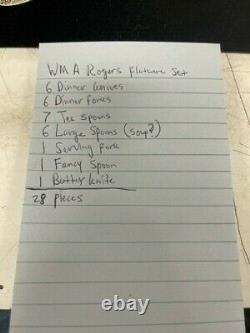 WM A Rogers Flatware Set
6 Dinner knives
6 Dinner forks
7 Tea spoons
6 Large Spoons (soup?)
1 Serving fork
1 Fancy Spoon
1 Butter knife
28 pieces
ebay